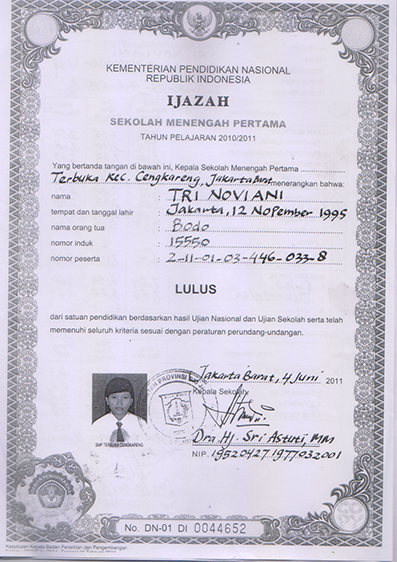 KEMENTERIAN PENDIDIKAN NASIONAL
REPUBLIK INDONESIA
IJAZAH
SEKOLAH MENENGAH PERTAMA
TAHUN PELAJARAN 2010/2011
Yang bertanda tangan di bawah ini, Kepala Sekolah Menengah Pertama
Terbuka Kec. Cengkareng, Jakarta Barat menerangkan bahwa:
nama : TRI NOVIANI
tempat dan tanggal lahir : Jakarta, 12 NoPember 1995
nama orang tua : Bodo
nomor induk : 15550
nomor peserta : 2-11-01-03-446-033-8
LULUS
dari satuan pendidikan berdasarkan hasil Ujian Nasional dan Ujian Sekolah serta telah
memenuhi seluruh kriteria sesuai dengan peraturan perundang-undangan.
Jakarta Barat, 4 Juni 2011
Kepala Sekolah,
Dra. Hj. Sri Astuti, MM
NIP. 195204271977032001
SMP TERBUKA CENGKARENG
No. DN-01 DI 0044652
Keputusan Kepala Badan Penelitian dan Pengembangan